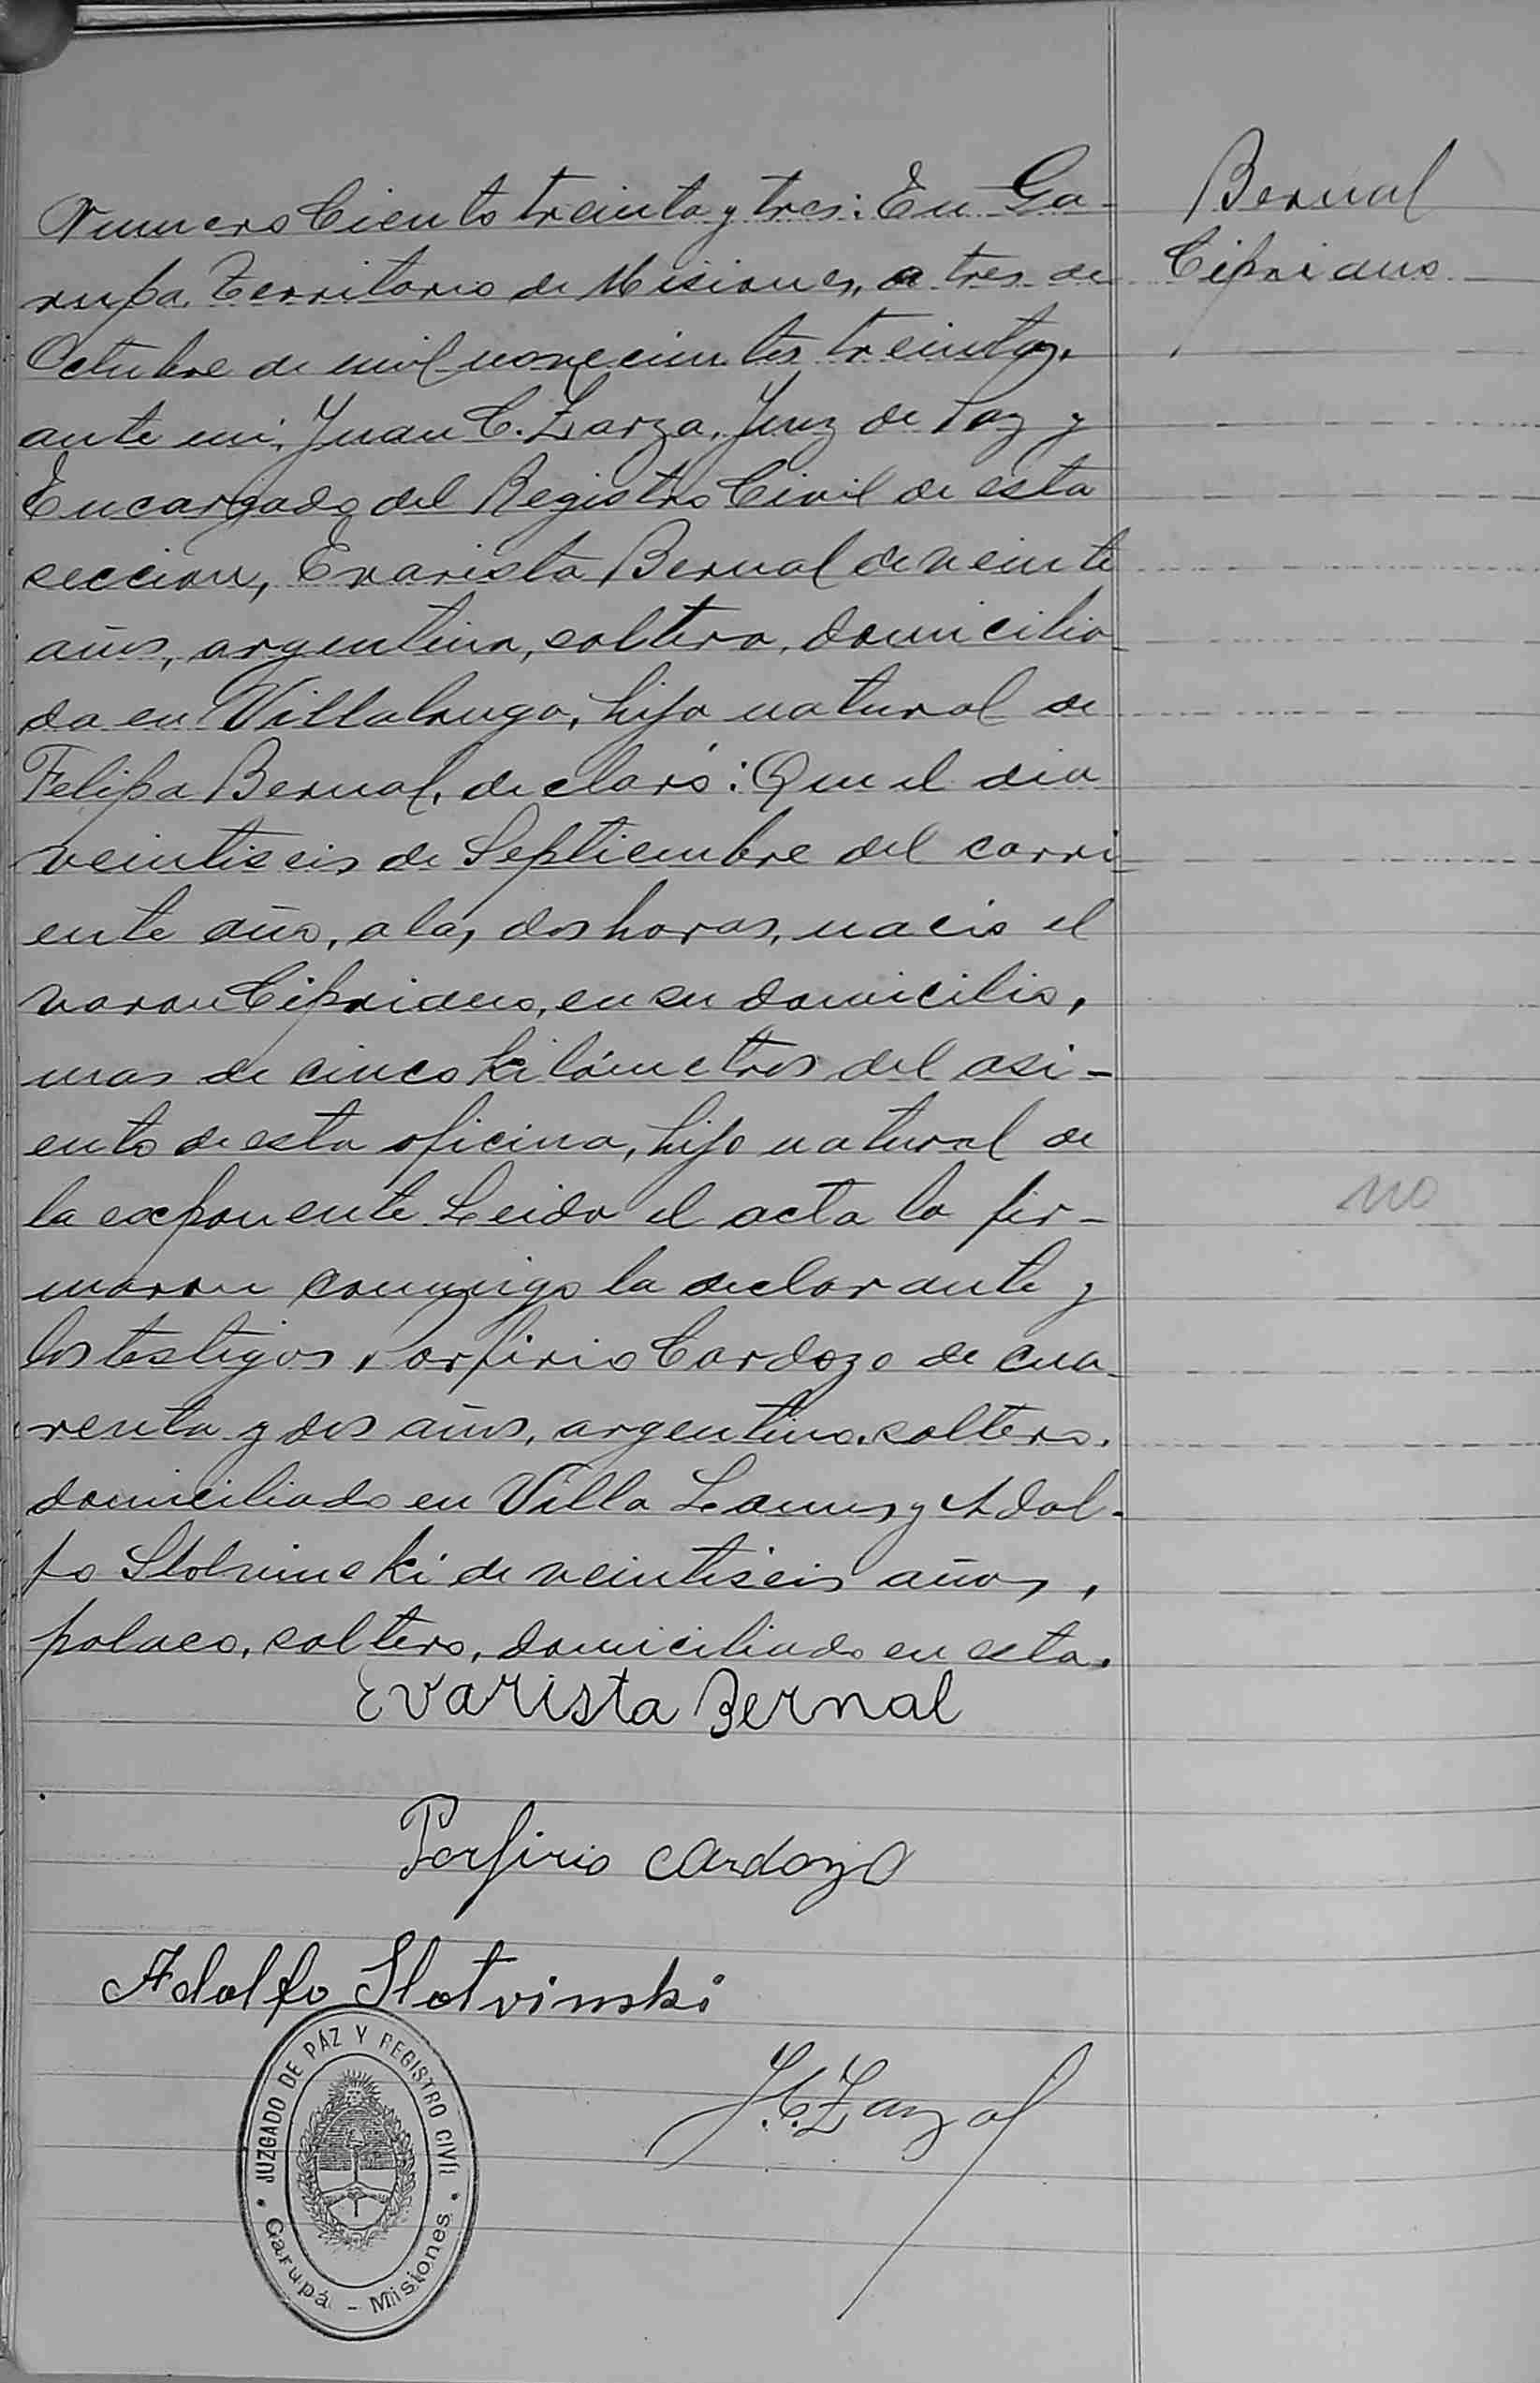 Bernal
Cipriano
Numero Ciento treinta y tres: En Ga-
rupa, Territorio de Misiones, a tres de
Octubre de mil novecientos treinta,
ante mi, Juan C. Zarza, Juez de Paz y
Encargado del Registro Civil de esta
seccion, Evarista Bernal de veinte
años, argentina, soltera, domicilia-
da en Villalonga, hija natural de
Felipa Bernal, declaró: Que el dia
veintiseis de Septiembre del corri-
ente año, a las dos horas, nacio el
varon Cipriano, en su domicilio,
mas de cinco kilómetros del asi-
ento de esta oficina, hijo natural de
la exponente. Leida el acta la fir-
maron conmigo la declarante y
los testigos Porfirio Cardozo de cua-
renta y dos años, argentino, soltero,
domiciliado en Villa Lanus y Adol-
fo de veintiseis años,
polaco, soltero, domiciliado en esta.
no
Evarista Bernal
Porfirio Cardozo
Adolfo Slotvinski
J. C. Zarza
JUZGADO DE PÁZ Y REGISTRO CIVIL
Garupá - Misiones